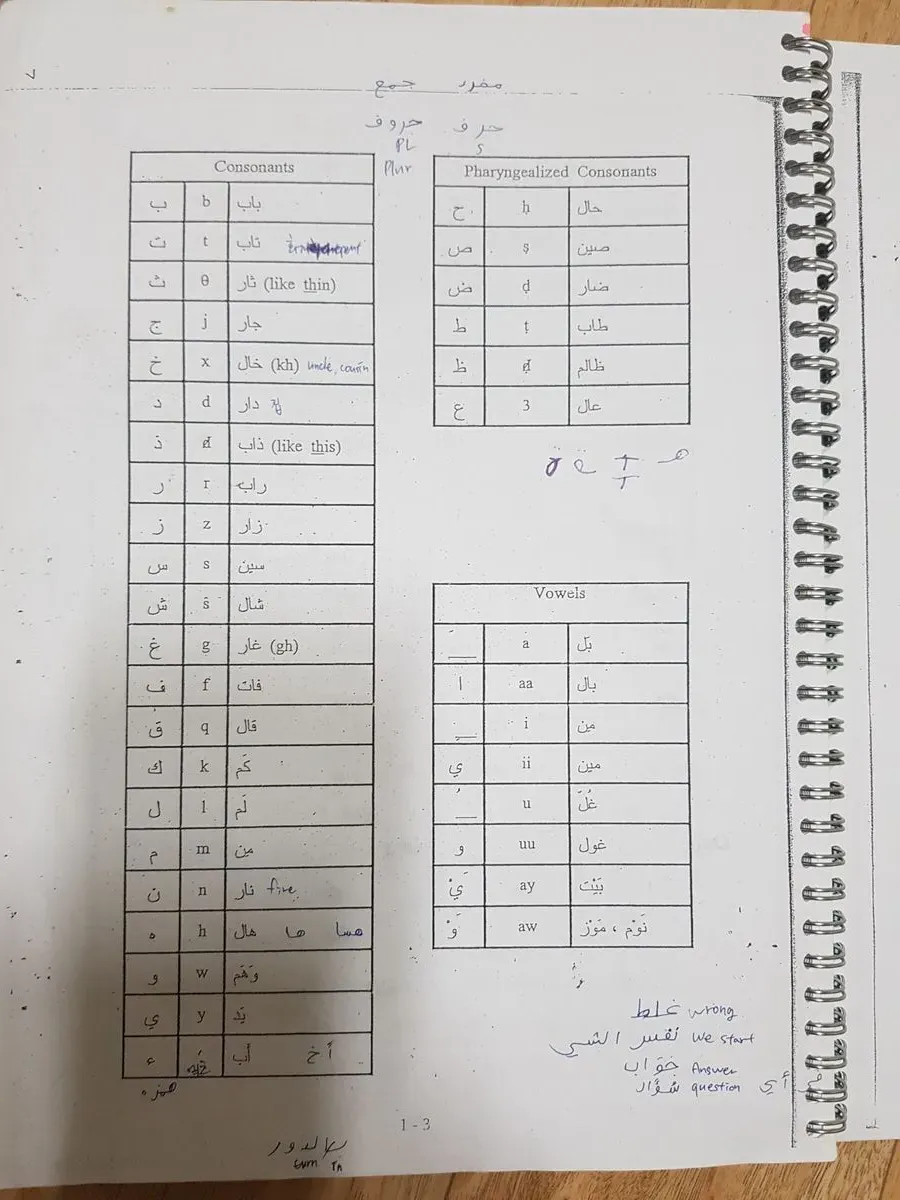 مفرد جمع
حرف حروف
PL S
Plur
Consonants
ب b باب
ت t تاب
ث θ ثار (like thin)
ج j جار
خ x خال (kh) uncle, cousin
د d دار 집
ذ đ ذاب (like this)
ر r راب
ز z زار
س s سين
ش š شال
غ g غار (gh)
ف f فات
ق q قال
ك k كَم
ل l لَم
م m مِن
ن n نار fire
ه h هال ها هسا
و w وَهَم
ي y يَد
ء أب أخ
همزه
Pharyngealized Consonants
ح ḥ حال
ص ṣ صين
ض ḍ ضار
ط ṭ طاب
ظ đ̣ ظالم
ع 3 عال
Vowels
َ a بَل
ا aa بال
ِ i مِن
ي ii مين
ُ u غُلّ
و uu غول
يْ ay بَيْت
وْ aw نَوْم ، مَوْز
غلط wrong
نفس الشي we start
جواب Answer
سُؤال question أي
1 - 3
بالدور
turn